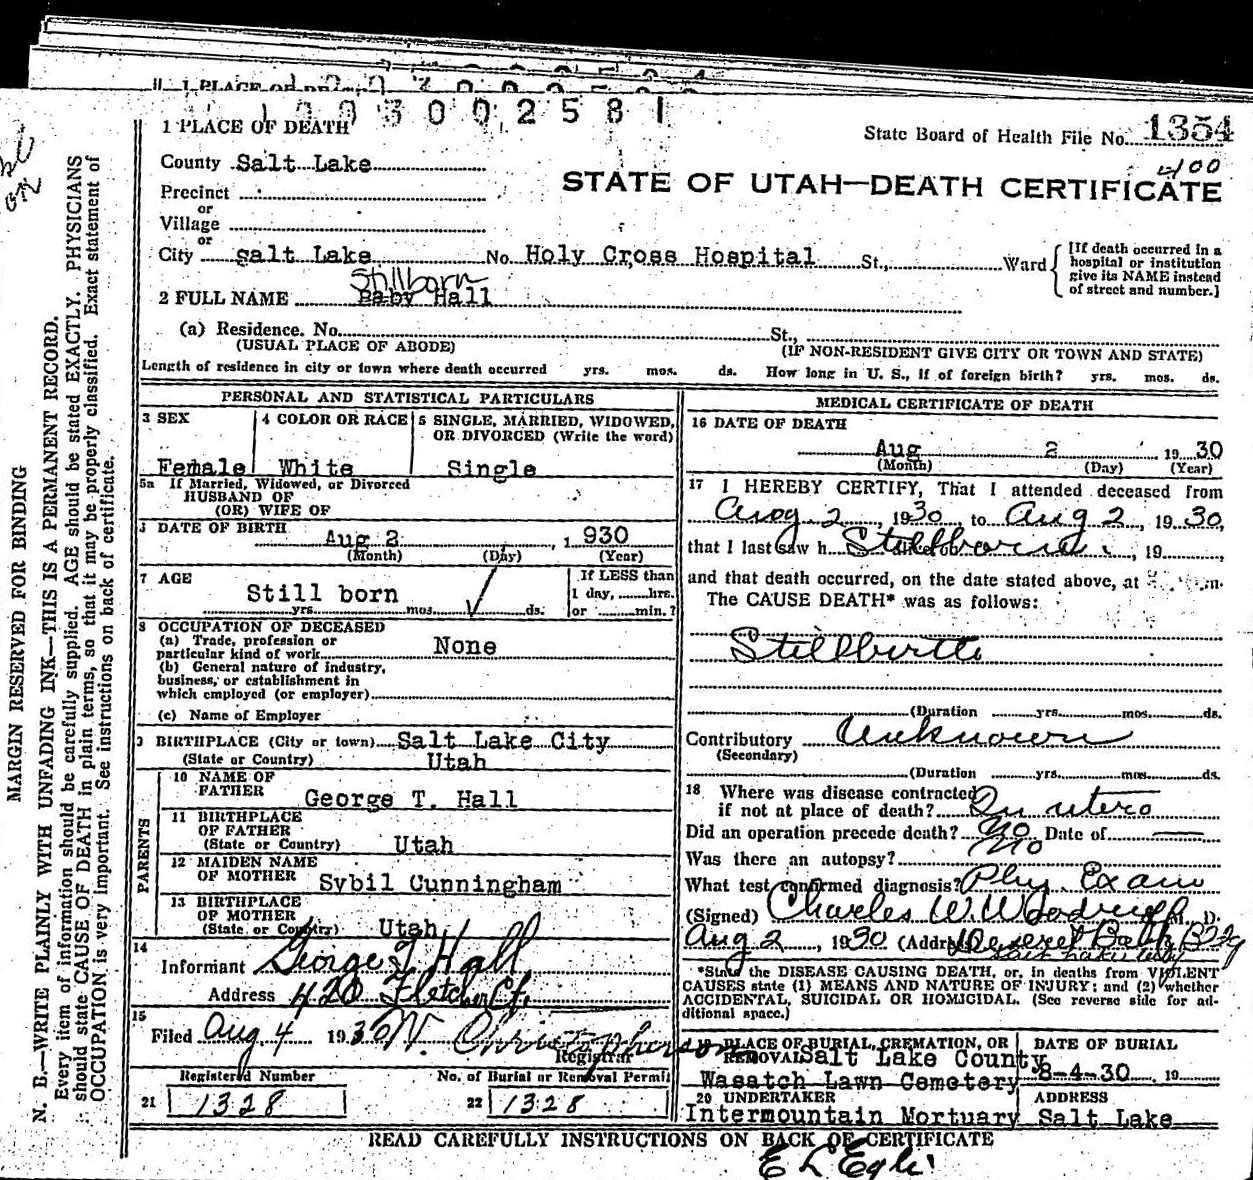 1 PLACE OF DEATH
1 0 0 3 0 0 2 5 8 1
1 PLACE OF DEATH
State Board of Health File No. 1354
County Salt Lake
400
STATE OF UTAH—DEATH CERTIFICATE
Precinct
or
Village
or
City salt Lake No. Holy Cross Hospital St., Ward
[If death occurred in a
hospital or institution
give its NAME instead
of street and number.]
Stillborn
2 FULL NAME Baby Hall
(a) Residence. No. St.,
(USUAL PLACE OF ABODE) (IF NON-RESIDENT GIVE CITY OR TOWN AND STATE)
Length of residence in city or town where death occurred yrs. mos. ds. How long in U. S., if of foreign birth? yrs. mos. ds.
PERSONAL AND STATISTICAL PARTICULARS
3 SEX
Female
4 COLOR OR RACE
White
5 SINGLE, MARRIED, WIDOWED,
OR DIVORCED (Write the word)
Single
5a If Married, Widowed, or Divorced
HUSBAND OF
(OR) WIFE OF
DATE OF BIRTH
Aug 2 , 1 930
(Month) (Day) (Year)
7 AGE
Still born
yrs. mos. ds.
If LESS than
1 day, hrs.
or min.?
8 OCCUPATION OF DECEASED
(a) Trade, profession or
particular kind of work None
(b) General nature of industry,
business, or establishment in
which employed (or employer)
(c) Name of Employer
BIRTHPLACE (City or town) Salt Lake City
(State or Country) Utah
PARENTS
10 NAME OF
FATHER George T. Hall
11 BIRTHPLACE
OF FATHER
(State or Country) Utah
12 MAIDEN NAME
OF MOTHER Sybil Cunningham
13 BIRTHPLACE
OF MOTHER
(State or Country) Utah
14
Informant George T Hall
Address 420 Fletcher Ct.
15
Filed Aug 4 1930 W. Christopherson
Registrar
Registered Number No. of Burial or Removal Permit
21 1328 22 1328
MEDICAL CERTIFICATE OF DEATH
16 DATE OF DEATH
Aug 2 19 30
(Month) (Day) (Year)
17 I HEREBY CERTIFY, That I attended deceased from
Aug 2 , 1930 to Aug 2 , 19 30,
that I last saw h Stillborn , 19 ,
and that death occurred, on the date stated above, at m.
The CAUSE DEATH* was as follows:
Stillbirth
(Duration yrs. mos. ds.
Contributory Unknown
(Secondary)
(Duration yrs. mos. ds.
18 Where was disease contracted
if not at place of death? In utero
Did an operation precede death? No Date of —
Was there an autopsy? No
What test confirmed diagnosis? Phy. Exam
(Signed) Charles W. Woodruff M. D.
Aug 2 , 1930 (Address) Deseret Bank Bldg
Salt Lake City
*State the DISEASE CAUSING DEATH, or, in deaths from VIOLENT
CAUSES state (1) MEANS AND NATURE OF INJURY; and (2) whether
ACCIDENTAL, SUICIDAL OR HOMICIDAL. (See reverse side for ad-
ditional space.)
19 PLACE OF BURIAL, CREMATION, OR
REMOVAL Salt Lake County
Wasatch Lawn Cemetery
DATE OF BURIAL
8-4-30 , 19
20 UNDERTAKER
Intermountain Mortuary
ADDRESS
Salt Lake
READ CAREFULLY INSTRUCTIONS ON BACK OF CERTIFICATE
E L Egli
MARGIN RESERVED FOR BINDING
N. B.—WRITE PLAINLY WITH UNFADING INK—THIS IS A PERMANENT RECORD.
Every item of information should be carefully supplied. AGE should be stated EXACTLY. PHYSICIANS
should state CAUSE OF DEATH in plain terms, so that it may be properly classified. Exact statement of
OCCUPATION is very important. See instructions on back of certificate.